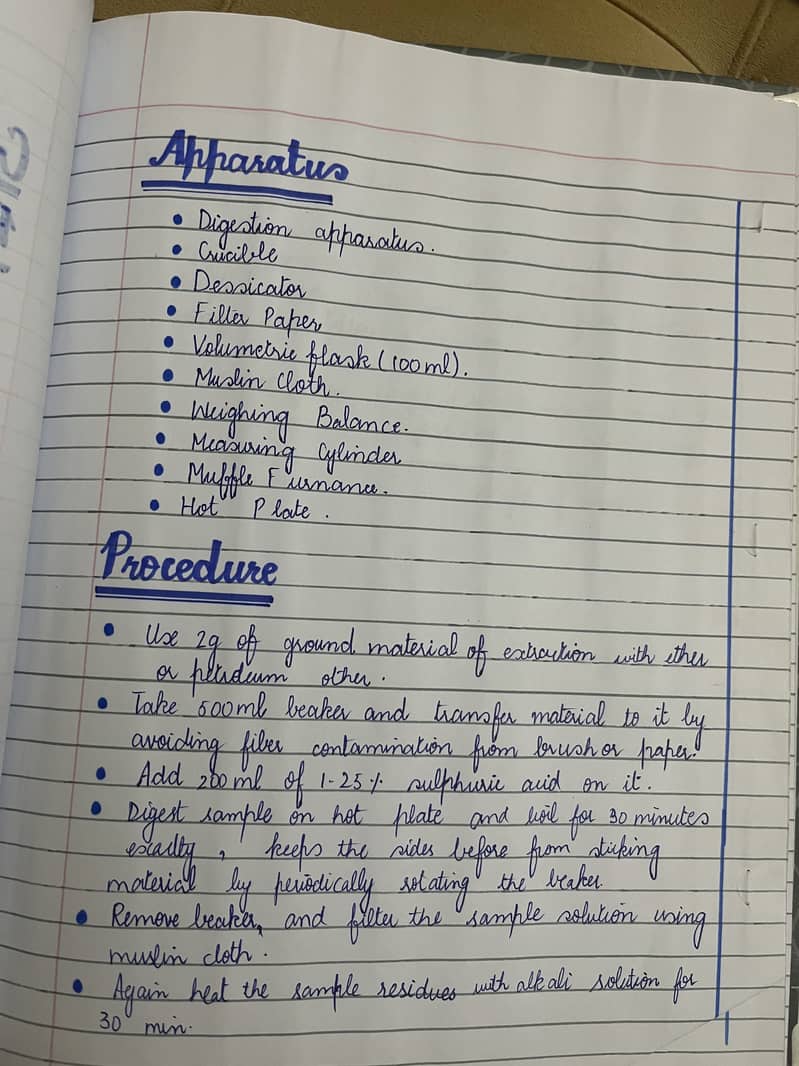 Apparatus
• Digestion apparatus.
• Crucible
• Dessicator
• Filter Paper
• Volumetric flask (100ml).
• Muslin Cloth.
• Weighing Balance.
• Measuring Cylinder
• Muffle Furnance.
• Hot Plate.
Procedure
• Use 2g of ground material of extraction with ether
or petroleum other.
• Take 500ml beaker and transfer material to it by
avoiding fiber contamination from brush or paper.
• Add 200ml of 1-25% sulphuric acid on it.
• Digest sample on hot plate and boil for 30 minutes
exactly, keeps the sides before from sticking
material by periodically rotating the beaker.
• Remove beaker, and filter the sample solution using
muslin cloth.
• Again heat the sample residues with alkali solution for
30 min.